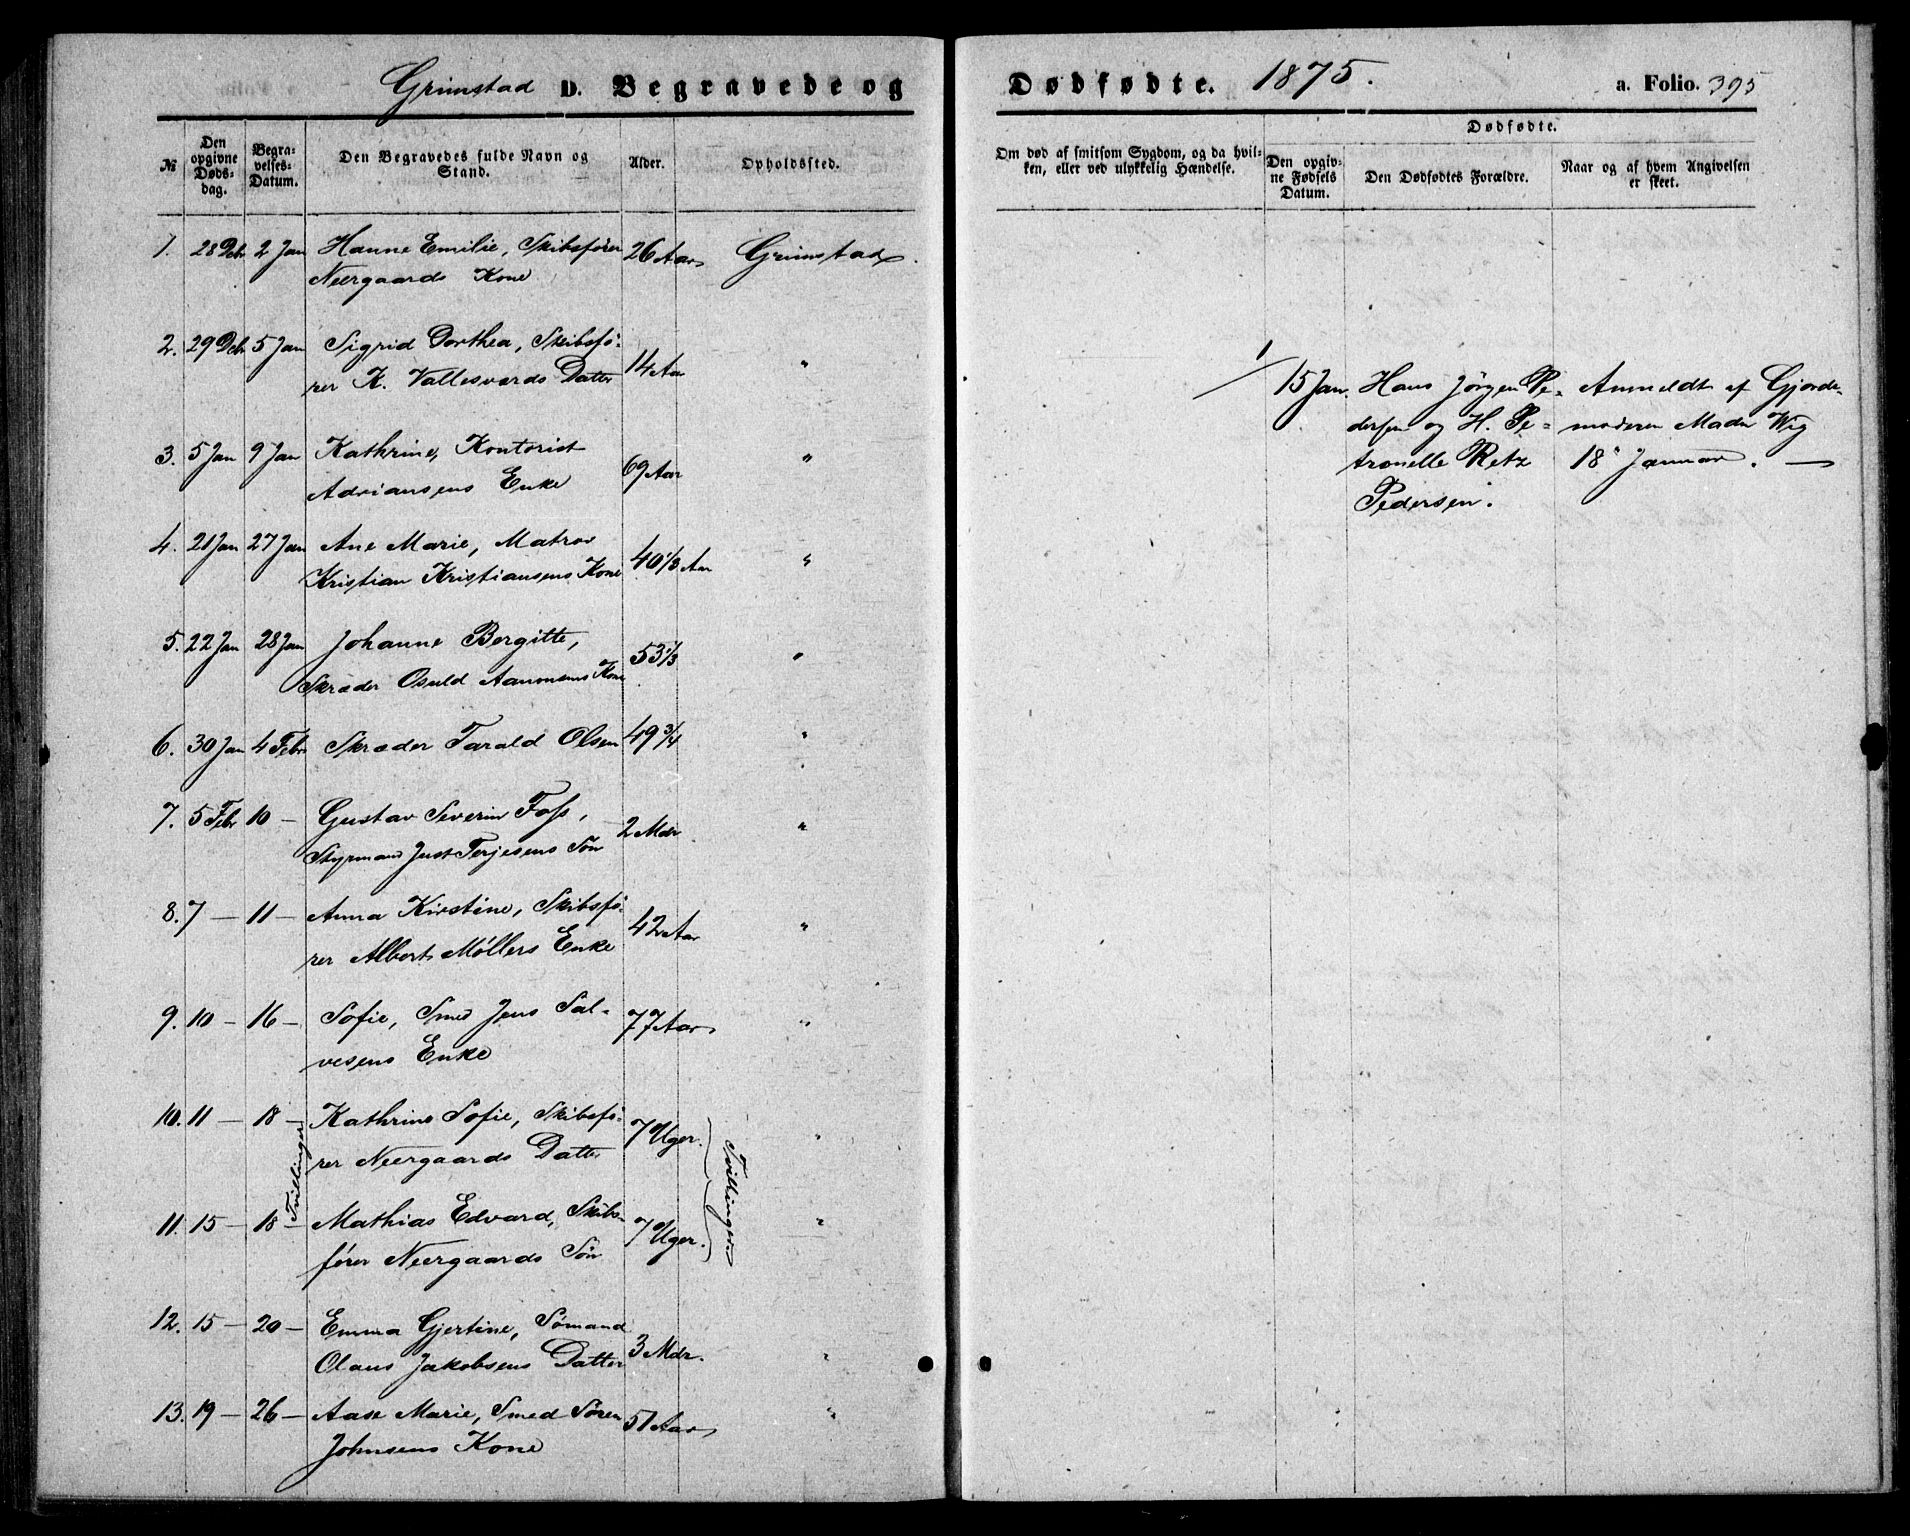 Grimstad D. Begravede og
Dødfødte. 1875. a. Folio. 395
№
Den opgivne Døds-dag.
Begra-velses-Datum.
Den Begravedes fulde Navn og Stand.
Alder.
Opholdssted.
Om død af smitsom Sygdom, og da hvil-
ken, eller ved ulykkelig Hændelse.
Dødfødte.
Den opgiv-
ne Fødsels
Datum.
Den Dødfødtes Forældre.
Naar og af hvem Angivelsen
er skeet.
1. 28 Debr 2 Jan Hanne Emilie, Skibsfører 26 Aar Grimstad.
Neergaards Kone
2. 29 Debr 5 Jan Sigrid Dorthea, Skibsfø-
rer K. Vallesværds Datter 14 Aar "
3. 5 Jan 9 Jan Kathrine, Kontorist 69 Aar "
Adriansens Enke
4. 21 Jan 27 Jan Ane Marie, Matros 40 1/3 Aar "
Kristian Kristiansens Kone
5. 22 Jan 28 Jan Johanne Bergitte, 53 1/3 "
Skræder Osuld Aanonsens Kone
6. 30 Jan 4 Febr Skræder Tarald Olsen 49 3/4 "
7. 5 Febr 10 — Gustav Severin Foss, 2 Mdr "
Styrmand Just Terjesens Søn
8. 7 — 11 — Anna Kirstine, Skibsfø- 42 Aar "
rer Albert Møllers Enke
9. 10 — 16 — Sofie, Smed Jens Sal- 77 Aar "
vesens Enke
10. 11 — 18 — Kathrine Sofie, Skibsfø- 7 Uger. "
rer Neergaards Datter
Tvillinger
Tvillinger
11. 15 — 18 — Mathias Edvard, Skibs- 7 Uger. "
fører Neergaards Søn
12. 15 — 20 — Emma Gjertine, Sømand 3 Mdr. "
Olaus Jakobsens Datter
13. 19 — 26 — Aase Marie, Smed Søren 51 Aar "
Johnsens Kone
1/ 15 Jan. Hans Jørgen Pe- Anmeldt af Gjorde-
dersen og H. Pe- moderen Madm Wig
tronelle Retz 18de Januar. —
Pedersen.